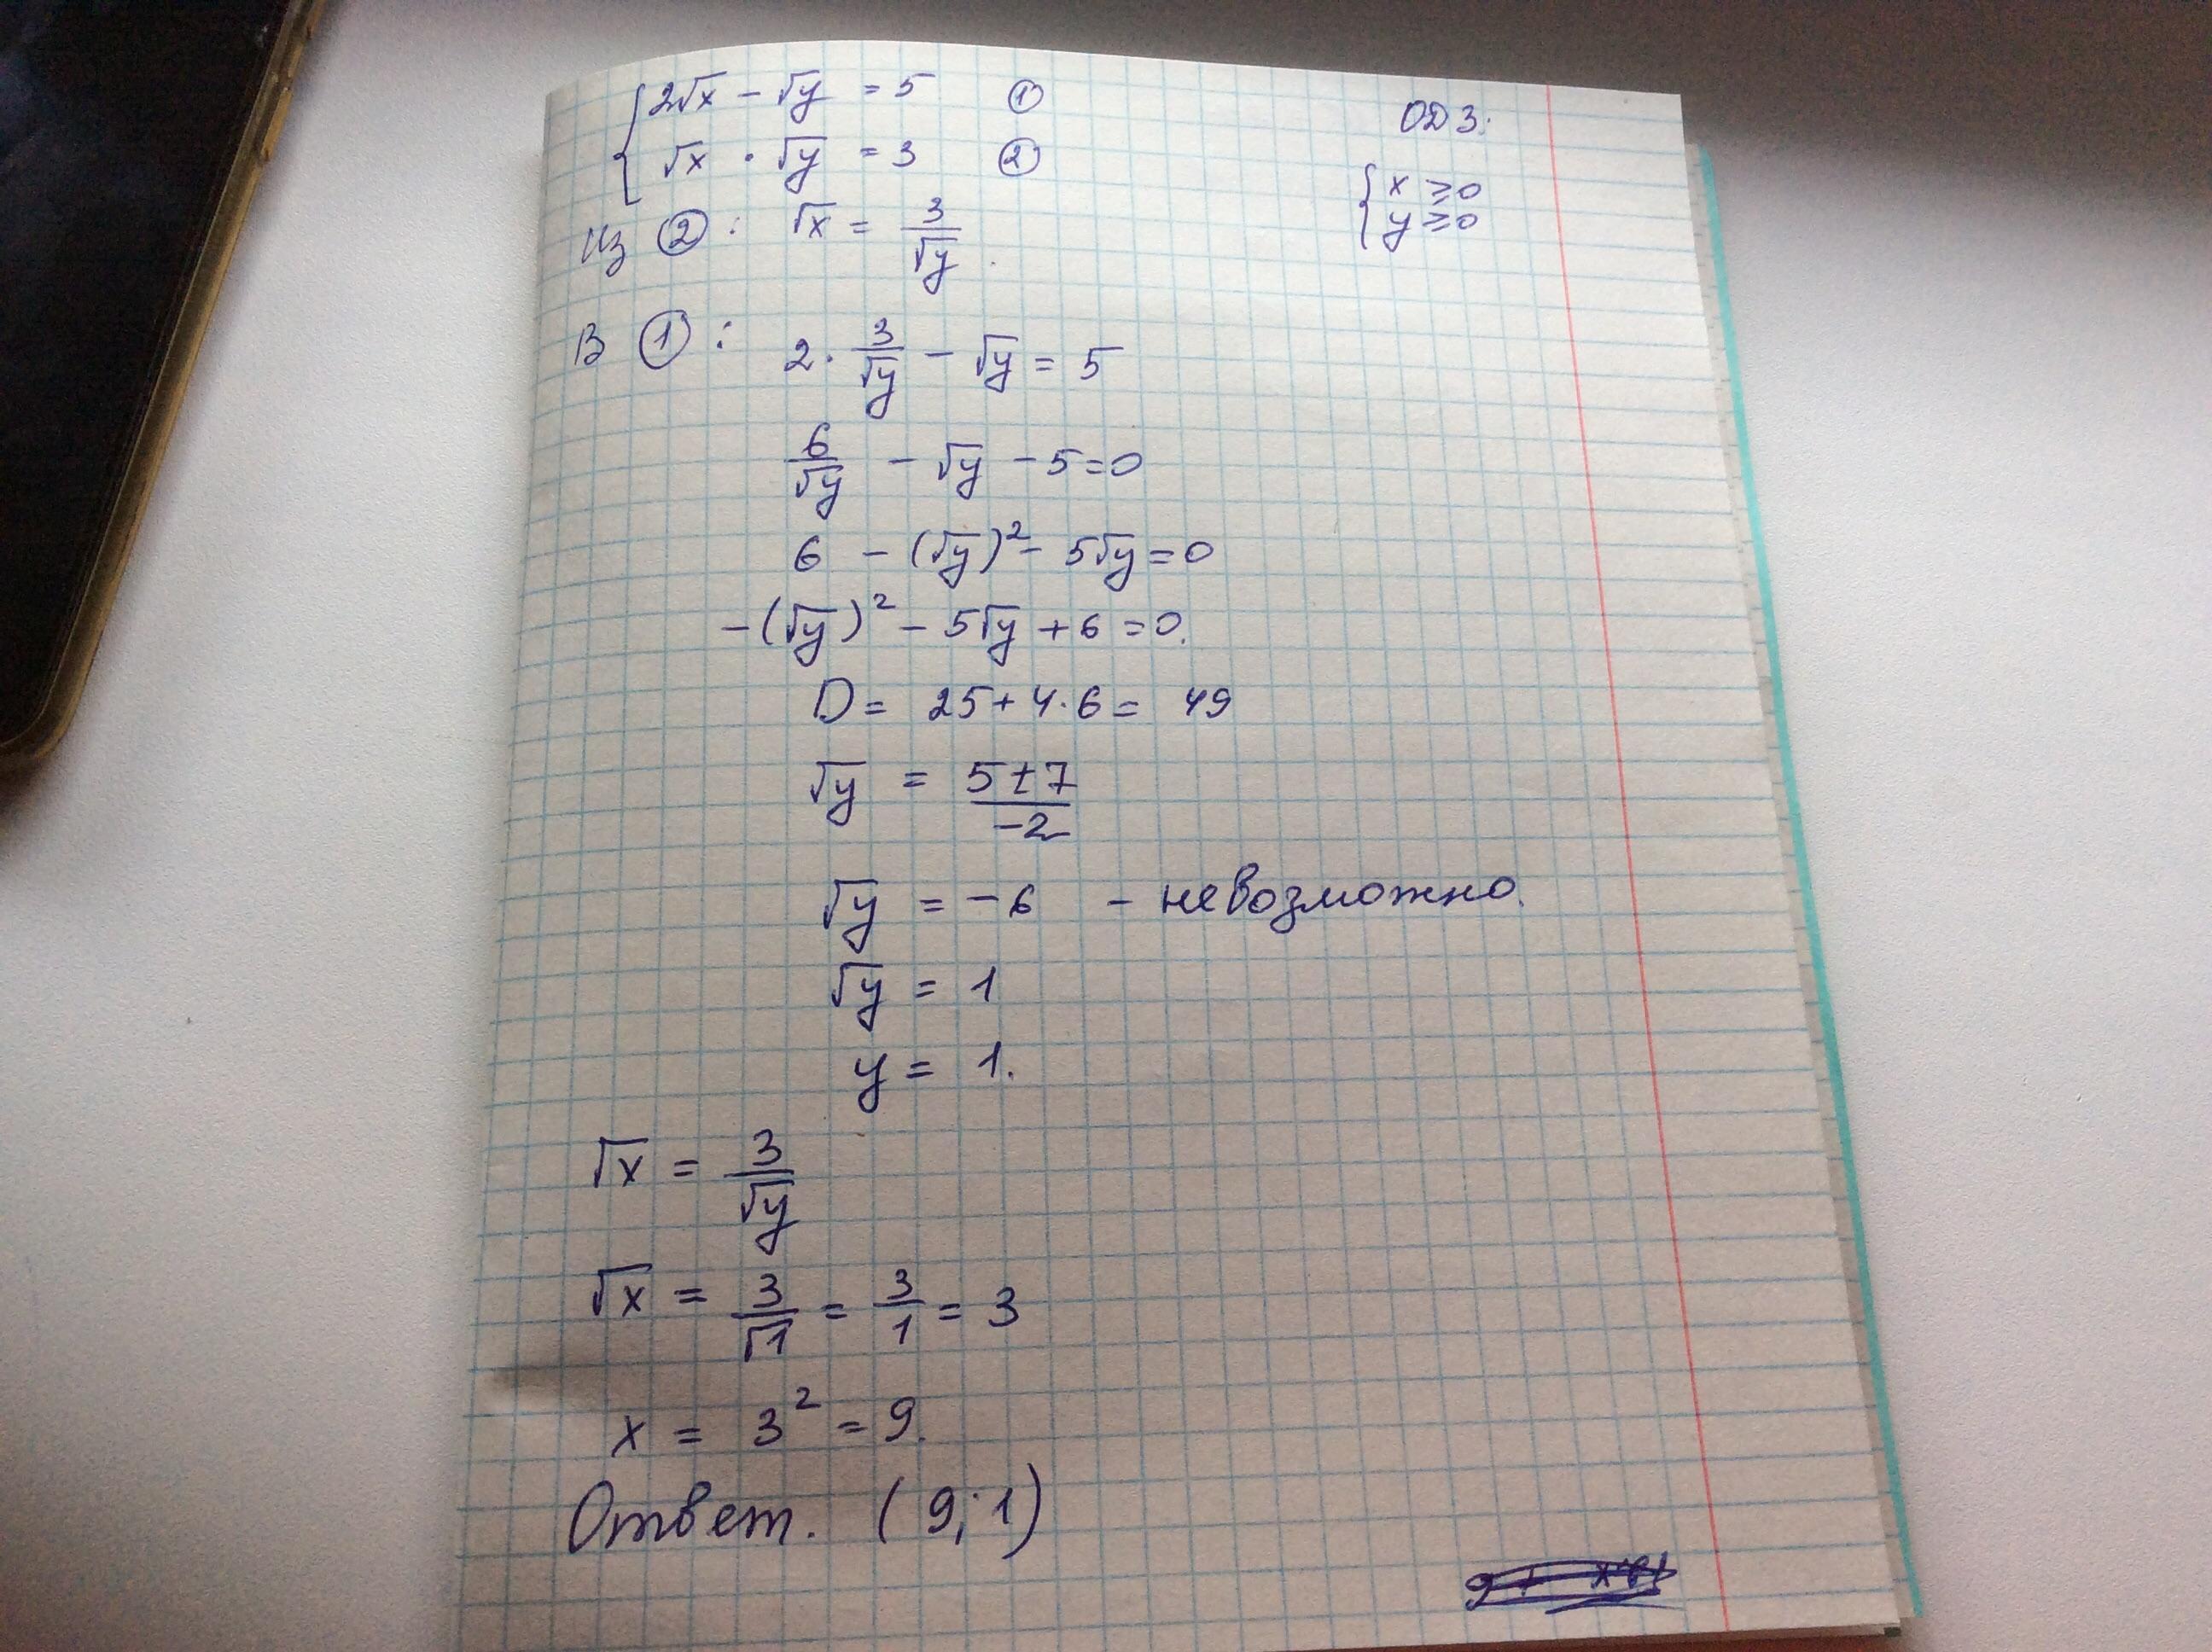 { 2√x - √y = 5 ①
√x · √y = 3 ②
ОДЗ:
{ x ≥ 0
y ≥ 0
Из ②: √x = 3/√y.
В ①: 2 · 3/√y - √y = 5
6/√y - √y - 5 = 0
6 - (√y)² - 5√y = 0
-(√y)² - 5√y + 6 = 0.
D = 25 + 4 · 6 = 49
√y = (5 ± 7)/(-2)
√y = -6 - невозможно.
√y = 1
y = 1.
√x = 3/√y
√x = 3/√1 = 3/1 = 3
x = 3² = 9.
Ответ. (9; 1)